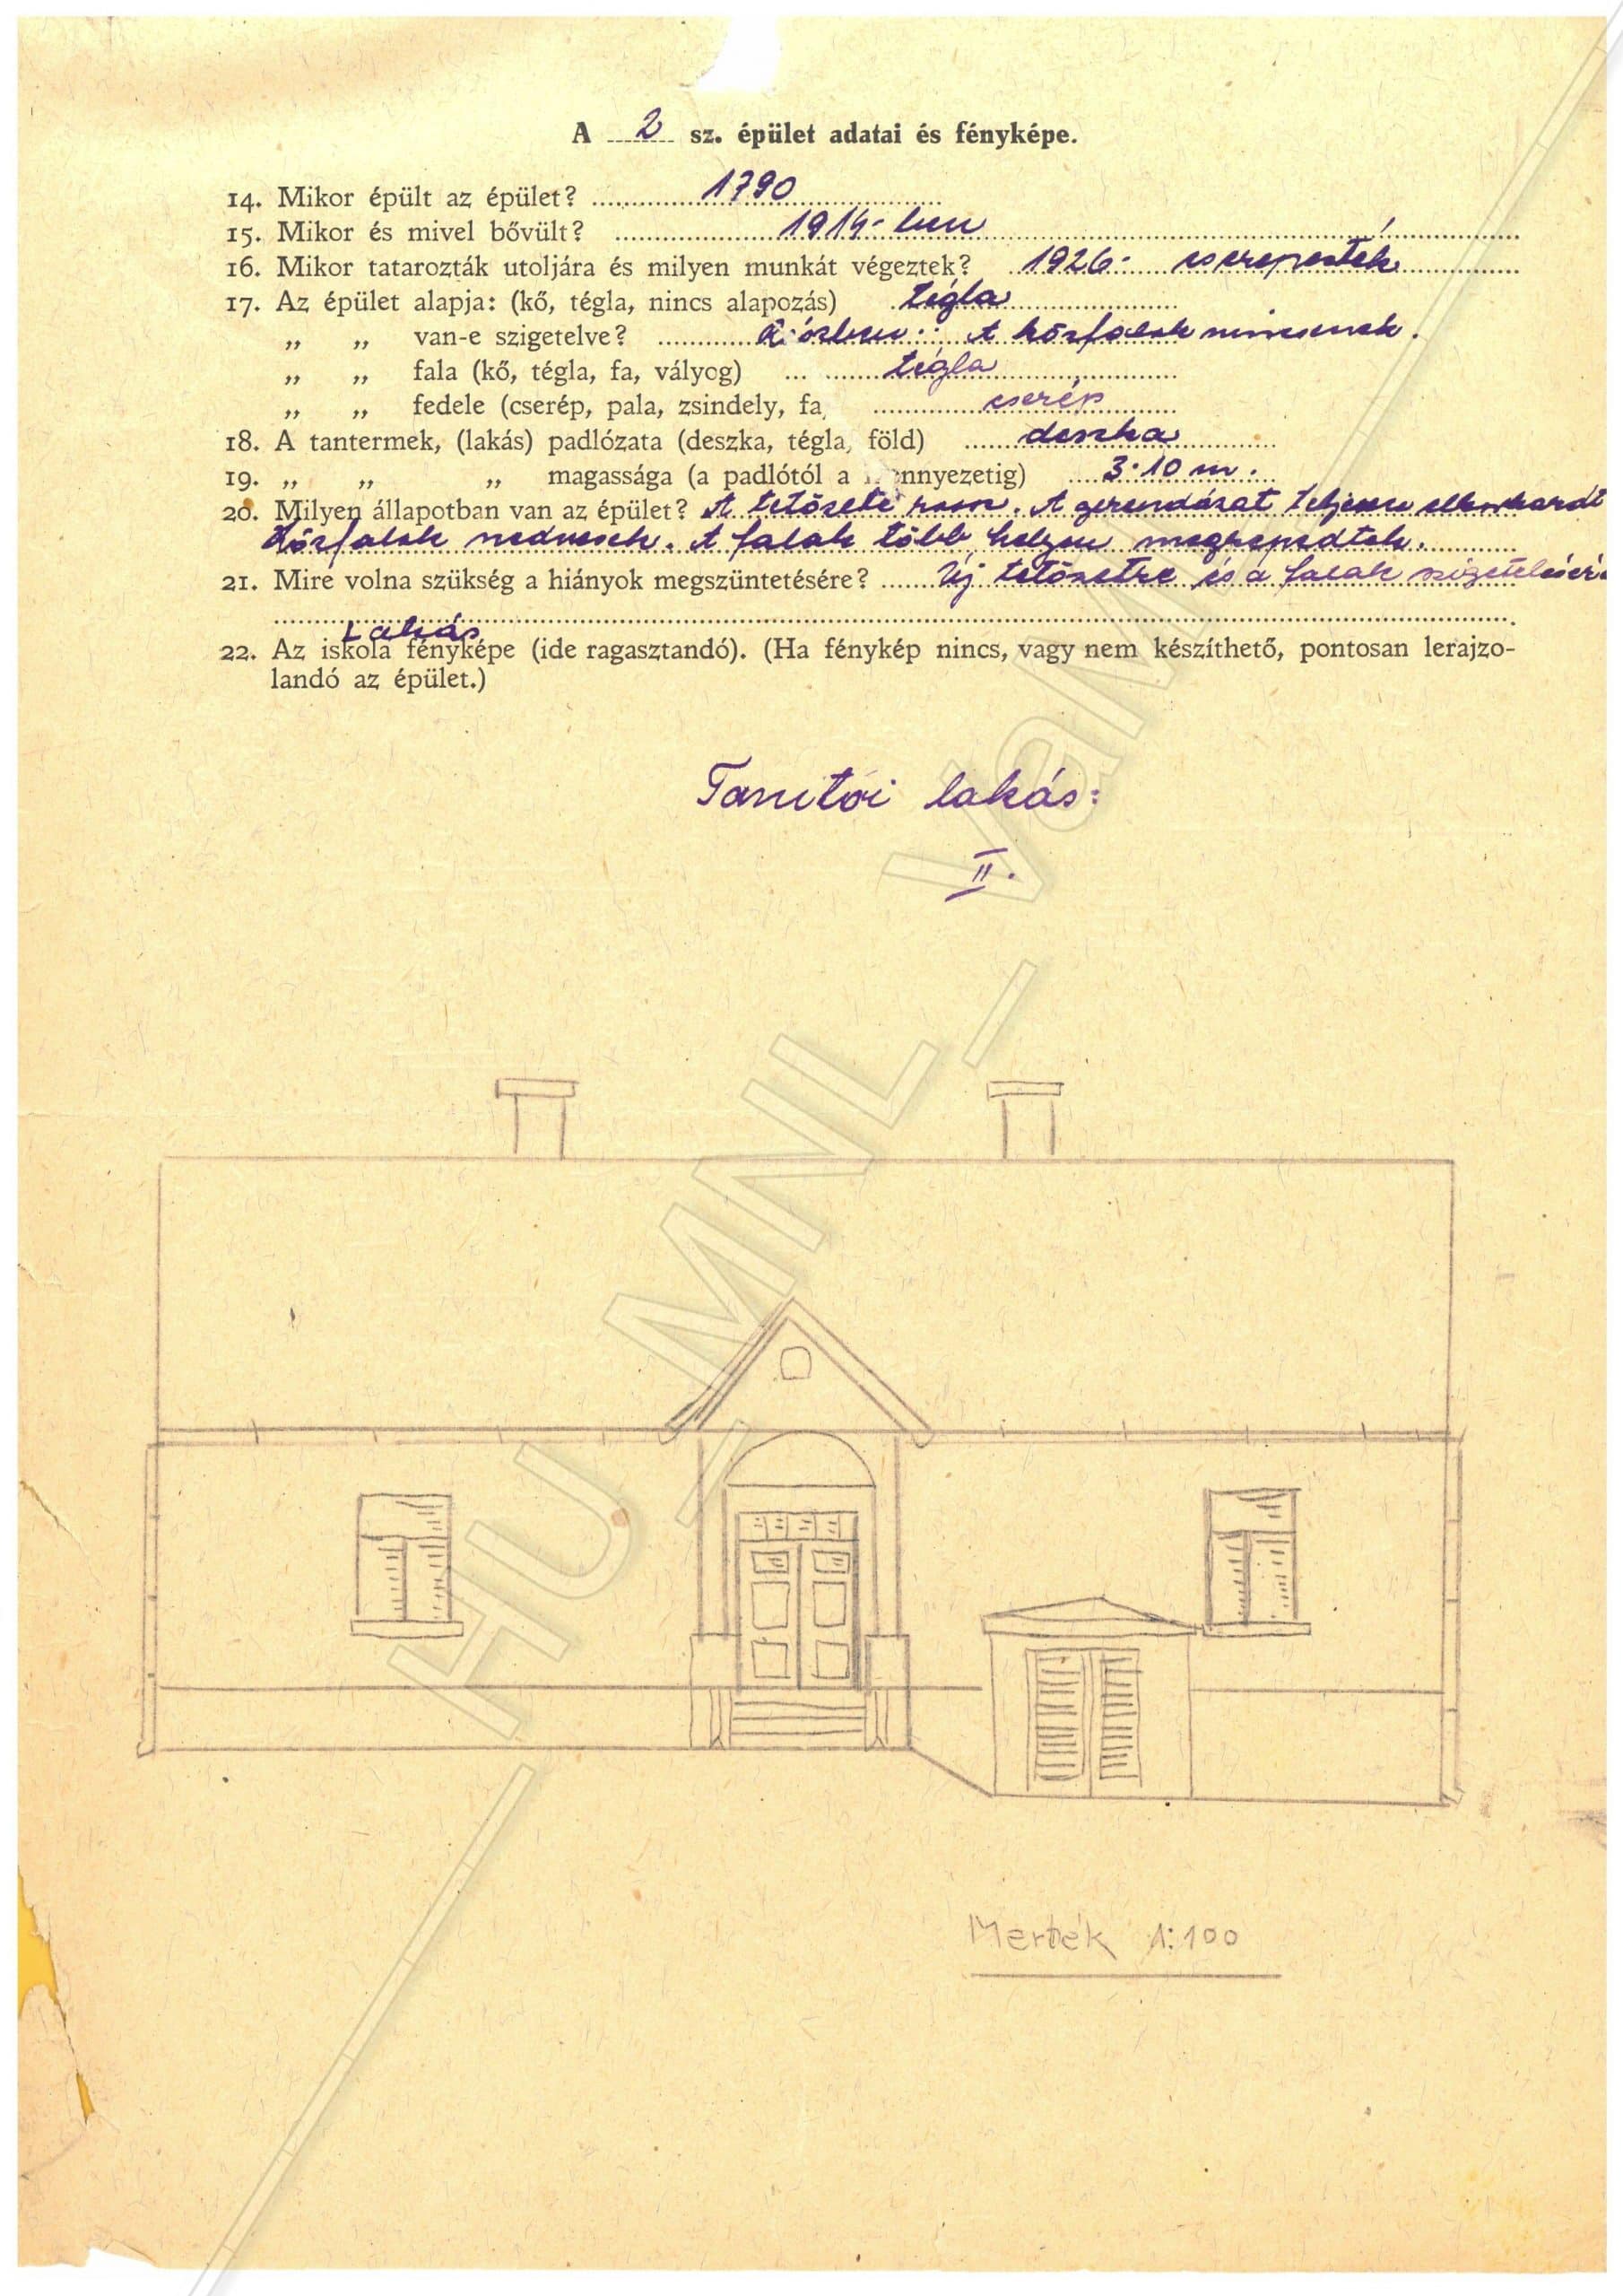 A 2 sz. épület adatai és fényképe.
14. Mikor épült az épület? 1790
15. Mikor és mivel bővült? 1914-ben
16. Mikor tatarozták utoljára és milyen munkát végeztek? 1926. cserepezték
17. Az épület alapja: (kő, tégla, nincs alapozás) tégla
„ „ van-e szigetelve? A körfalak nincsenek.
„ „ fala (kő, tégla, fa, vályog) tégla
„ „ fedele (cserép, pala, zsindely, fa, cserép
18. A tantermek, (lakás) padlózata (deszka, tégla, föld) deszka
19. „ „ „ magassága (a padlótól a nnyezetig) 3.10 m.
20. Milyen állapotban van az épület? A tetőzete rossz. A gerendázat teljesen elkorhadt
Körfalak nedvesek. A falak több helyen megrepedtek.
21. Mire volna szükség a hiányok megszüntetésére? Új tetőzetre és a falak szigetelésére
Lakás
22. Az iskola fényképe (ide ragasztandó). (Ha fénykép nincs, vagy nem készíthető, pontosan lerajzo-
landó az épület.)
Tanitói lakás:
II.
HU - MNL - VaML
Mérték 1:100